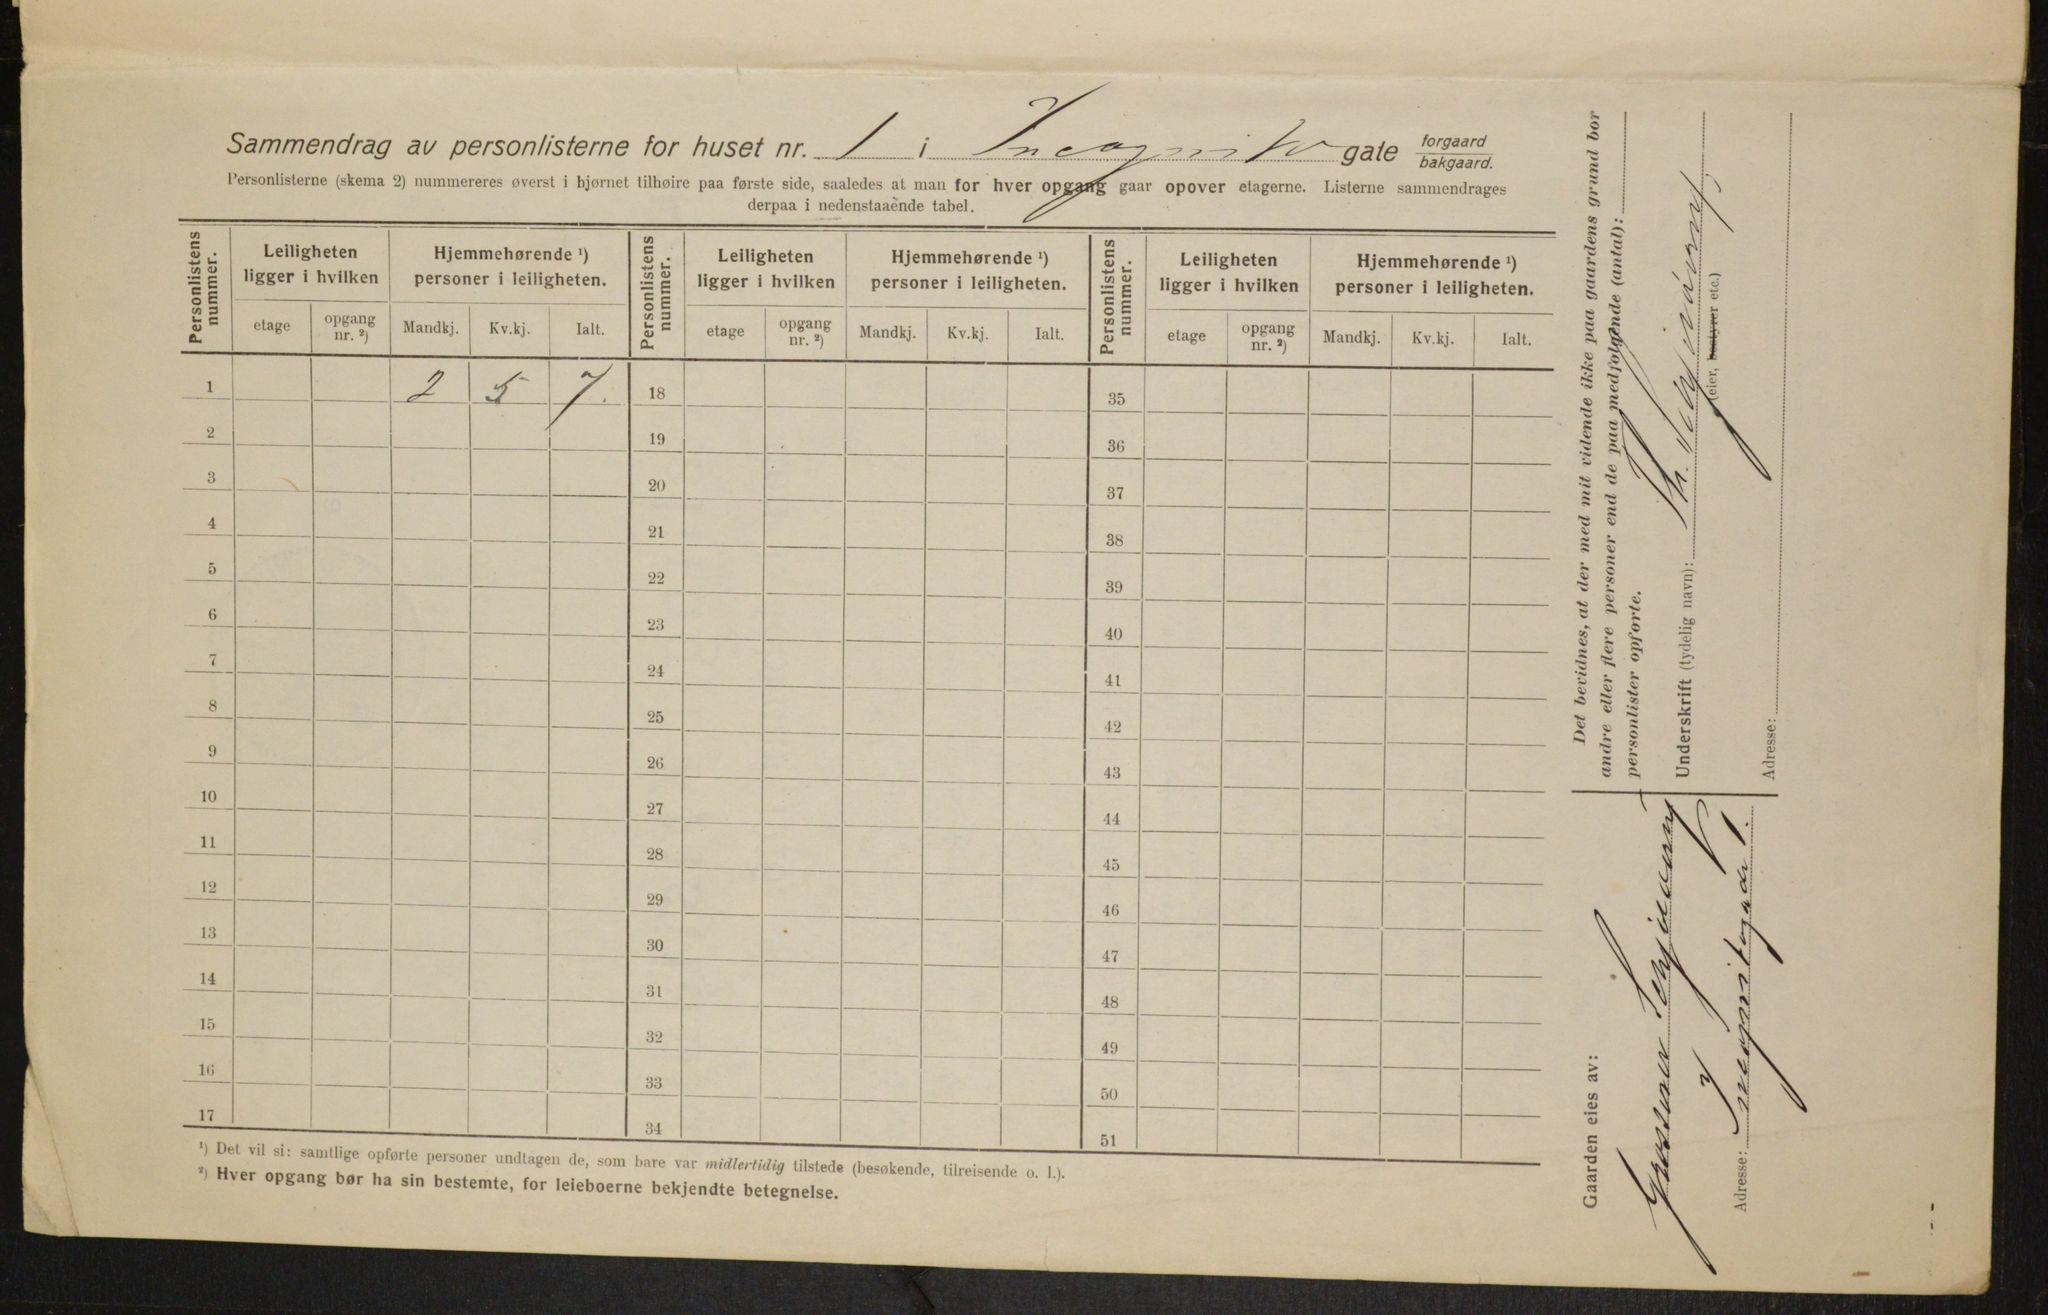 Sammendrag av personlisterne for huset nr. 1 i Incognito gate forgaard
bakgaard.
Personlisterne (skema 2) nummereres øverst i hjørnet tilhøire paa første side, saaledes at man for hver opgang gaar opover etagerne. Listerne sammendrages
derpaa i nedenstaaende tabel.
Personlistens nummer. Leiligheten ligger i hvilken Hjemmehørende ¹) personer i leiligheten. Personlistens nummer. Leiligheten ligger i hvilken Hjemmehørende ¹) personer i leiligheten. Personlistens nummer. Leiligheten ligger i hvilken Hjemmehørende ¹) personer i leiligheten.
etage opgang nr. ²) Mandkj. Kv.kj. Ialt. etage opgang nr. ²) Mandkj. Kv.kj. Ialt. etage opgang nr. ²) Mandkj. Kv.kj. Ialt.
1 2 5 7. 18 35
2 19 36
3 20 37
4 21 38
5 22 39
6 23 40
7 24 41
8 25 42
9 26 43
10 27 44
11 28 45
12 29 46
13 30 47
14 31 48
15 32 49
16 33 50
17 34 51
¹) Det vil si: samtlige opførte personer undtagen de, som bare var midlertidig tilstede (besøkende, tilreisende o. l.).
²) Hver opgang bør ha sin bestemte, for leieboerne bekjendte betegnelse.
Det bevidnes, at der med mit vidende ikke paa gaardens grund bor
andre eller flere personer end de paa medfølgende (antal):
personlister opførte.
Underskrift (tydelig navn):
(eier, bestyrer etc.)
Adresse:
Gaarden eies av:
Adresse: Incognitogade 1.